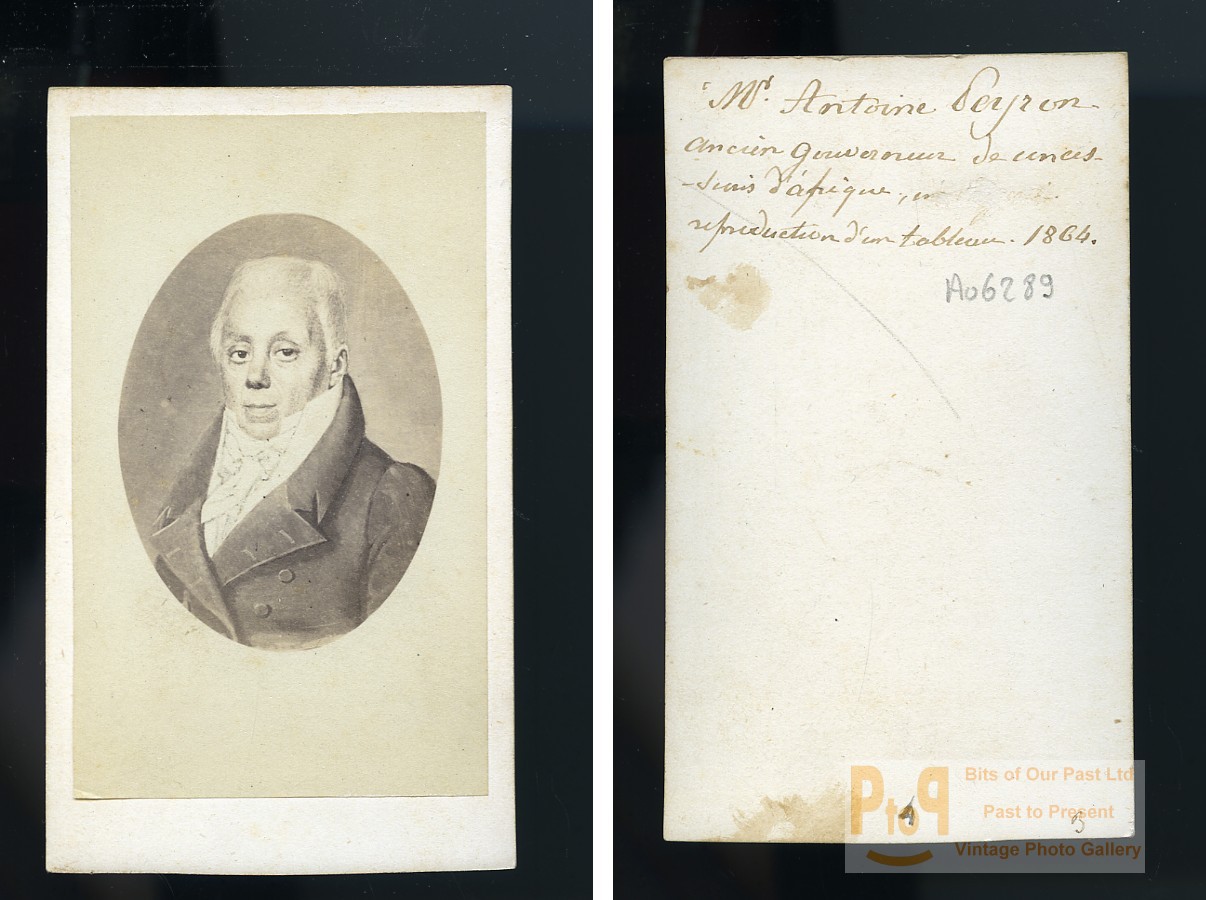 Mr. Antoine Peyron
ancien gouverneur de conces-
-sions d'afrique,
reproduction d'un tableau. 1864.
A06289
PtoP
Bits of Our Past Ltd
Past to Present
Vintage Photo Gallery